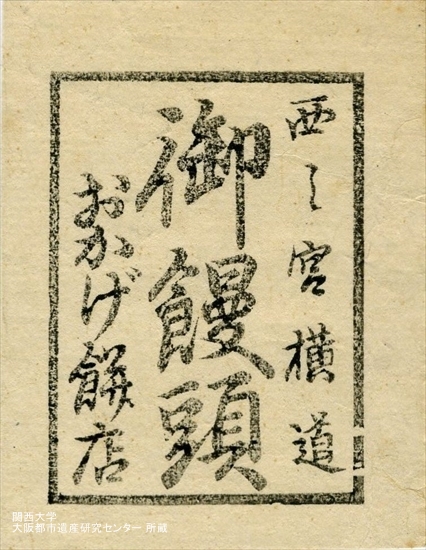 西之宮横道
御饅頭
おかげ餅店
関西大学
大阪都市遺産研究センター 所蔵